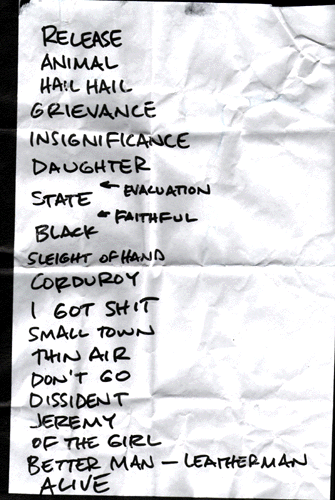 RELEASE
ANIMAL
HAIL HAIL
GRIEVANCE
INSIGNIFICANCE
DAUGHTER
STATE ← EVACUATION
BLACK ← FAITHFUL
SLEIGHT OF HAND
CORDUROY
I GOT SHIT
SMALL TOWN
THIN AIR
DON'T GO
DISSIDENT
JEREMY
OF THE GIRL
BETTER MAN – LEATHERMAN
ALIVE